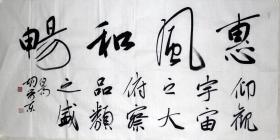 惠風和暢
仰觀
宇宙
之大
俯察
品類
之盛